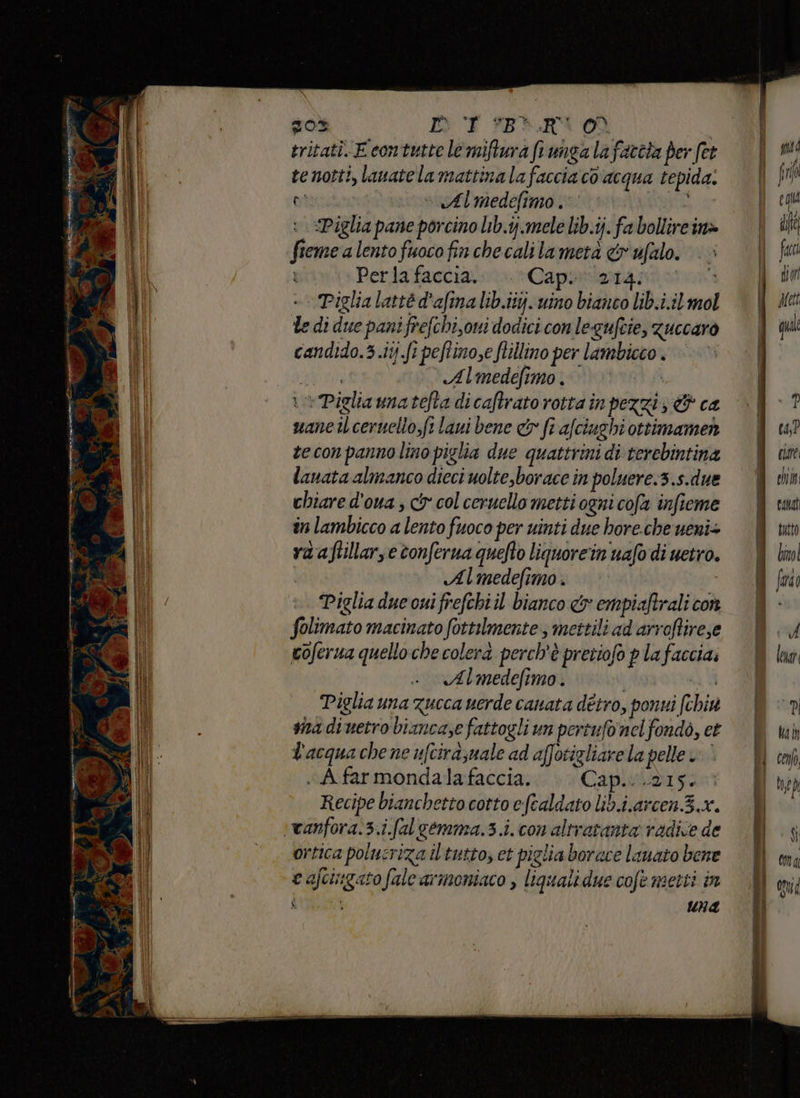 202 L I B R O
tritati. E con tutte le miſtura ſi unga la faccia per ſet
te notti, lauatela mattina la faccia cō acqua tepida.
Al medeſimo.
Piglia pane porcino lib.ij.mele lib.ij. fa bollire in=
ſieme a lento fuoco fin che cali la metà & uſalo.
Per la faccia. Cap. 214.
Piglia latte d'aſina lib.iiij. uino bianco lib.i.il mol
le di due pani freſchi,oui dodici con le guſcie, zuccaro
candido.ʒ.iij.ſi peſtino,e ſtillino per lambicco.
Al medeſimo.
Piglia una teſta di caſtrato rotta in pezzi, & ca
uane il ceruello,ſi laui bene & ſi aſciughi ottimamen
te con panno lino piglia due quattrini di terebintina
lauata almanco dieci uolte,borace in poluere.ʒ.s.due
chiare d'oua, & col ceruello metti ogni coſa inſieme
in lambicco a lento fuoco per uinti due hore.che ueni=
rà a ſtillar, e conſerua queſto liquore in uaſo di uetro.
Al medeſimo.
Piglia due oui freſchi il bianco & empiaſtrali con
ſolimato macinato ſottilmente, mettili ad arroſtire,e
cōſerua quello che colerà perch'è pretioſo p la faccia.
Al medeſimo.
Piglia una zucca uerde cauata dētro, ponui ſchiu
ma di uetro bianca,e fattogli un pertuſo nel fondo, et
l'acqua che ne uſcirà,uale ad aſſotigliare la pelle.
A far monda la faccia. Cap. 215.
Recipe bianchetto cotto e ſcaldato lib.i.arcen.ʒ.x.
canfora.ʒ.i.ſal gemma.ʒ.i. con altratanta radice de
ortica poluerizа il tutto, et piglia borace lauato bene
e aſciugato ſale armoniaco, liquali due coſe metti in
una